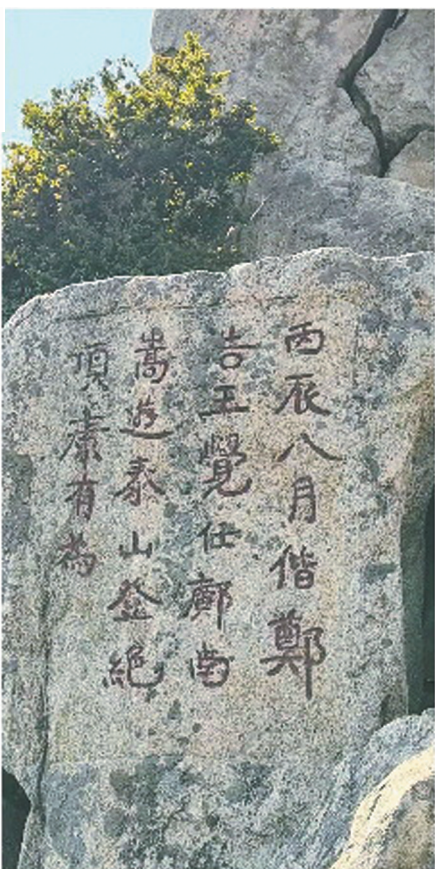 丙辰八月偕鄭
告王覺任鄺南
嵩遊泰山登絕
頂康有為